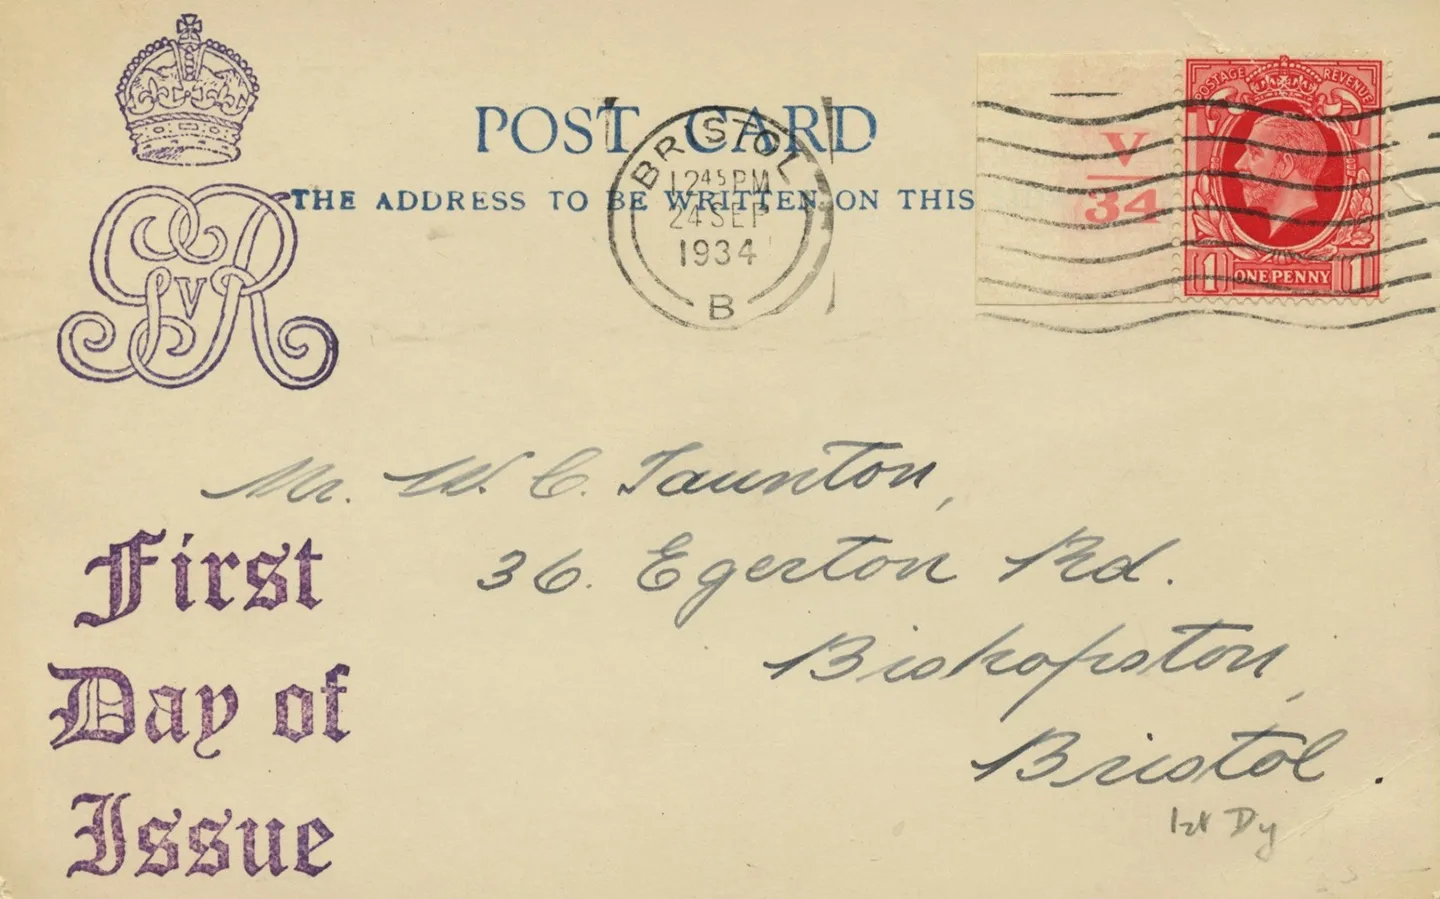 POST CARD
THE ADDRESS TO BE WRITTEN ON THIS
GvR
BRISTOL
12 45 PM
24 SEP
1934
B
V
34
POSTAGE REVENUE
1 ONE PENNY 1
Mr. W. C. Taunton,
36. Egerton Rd.
Bishopston,
Bristol.
1st Dy
First
Day of
Issue